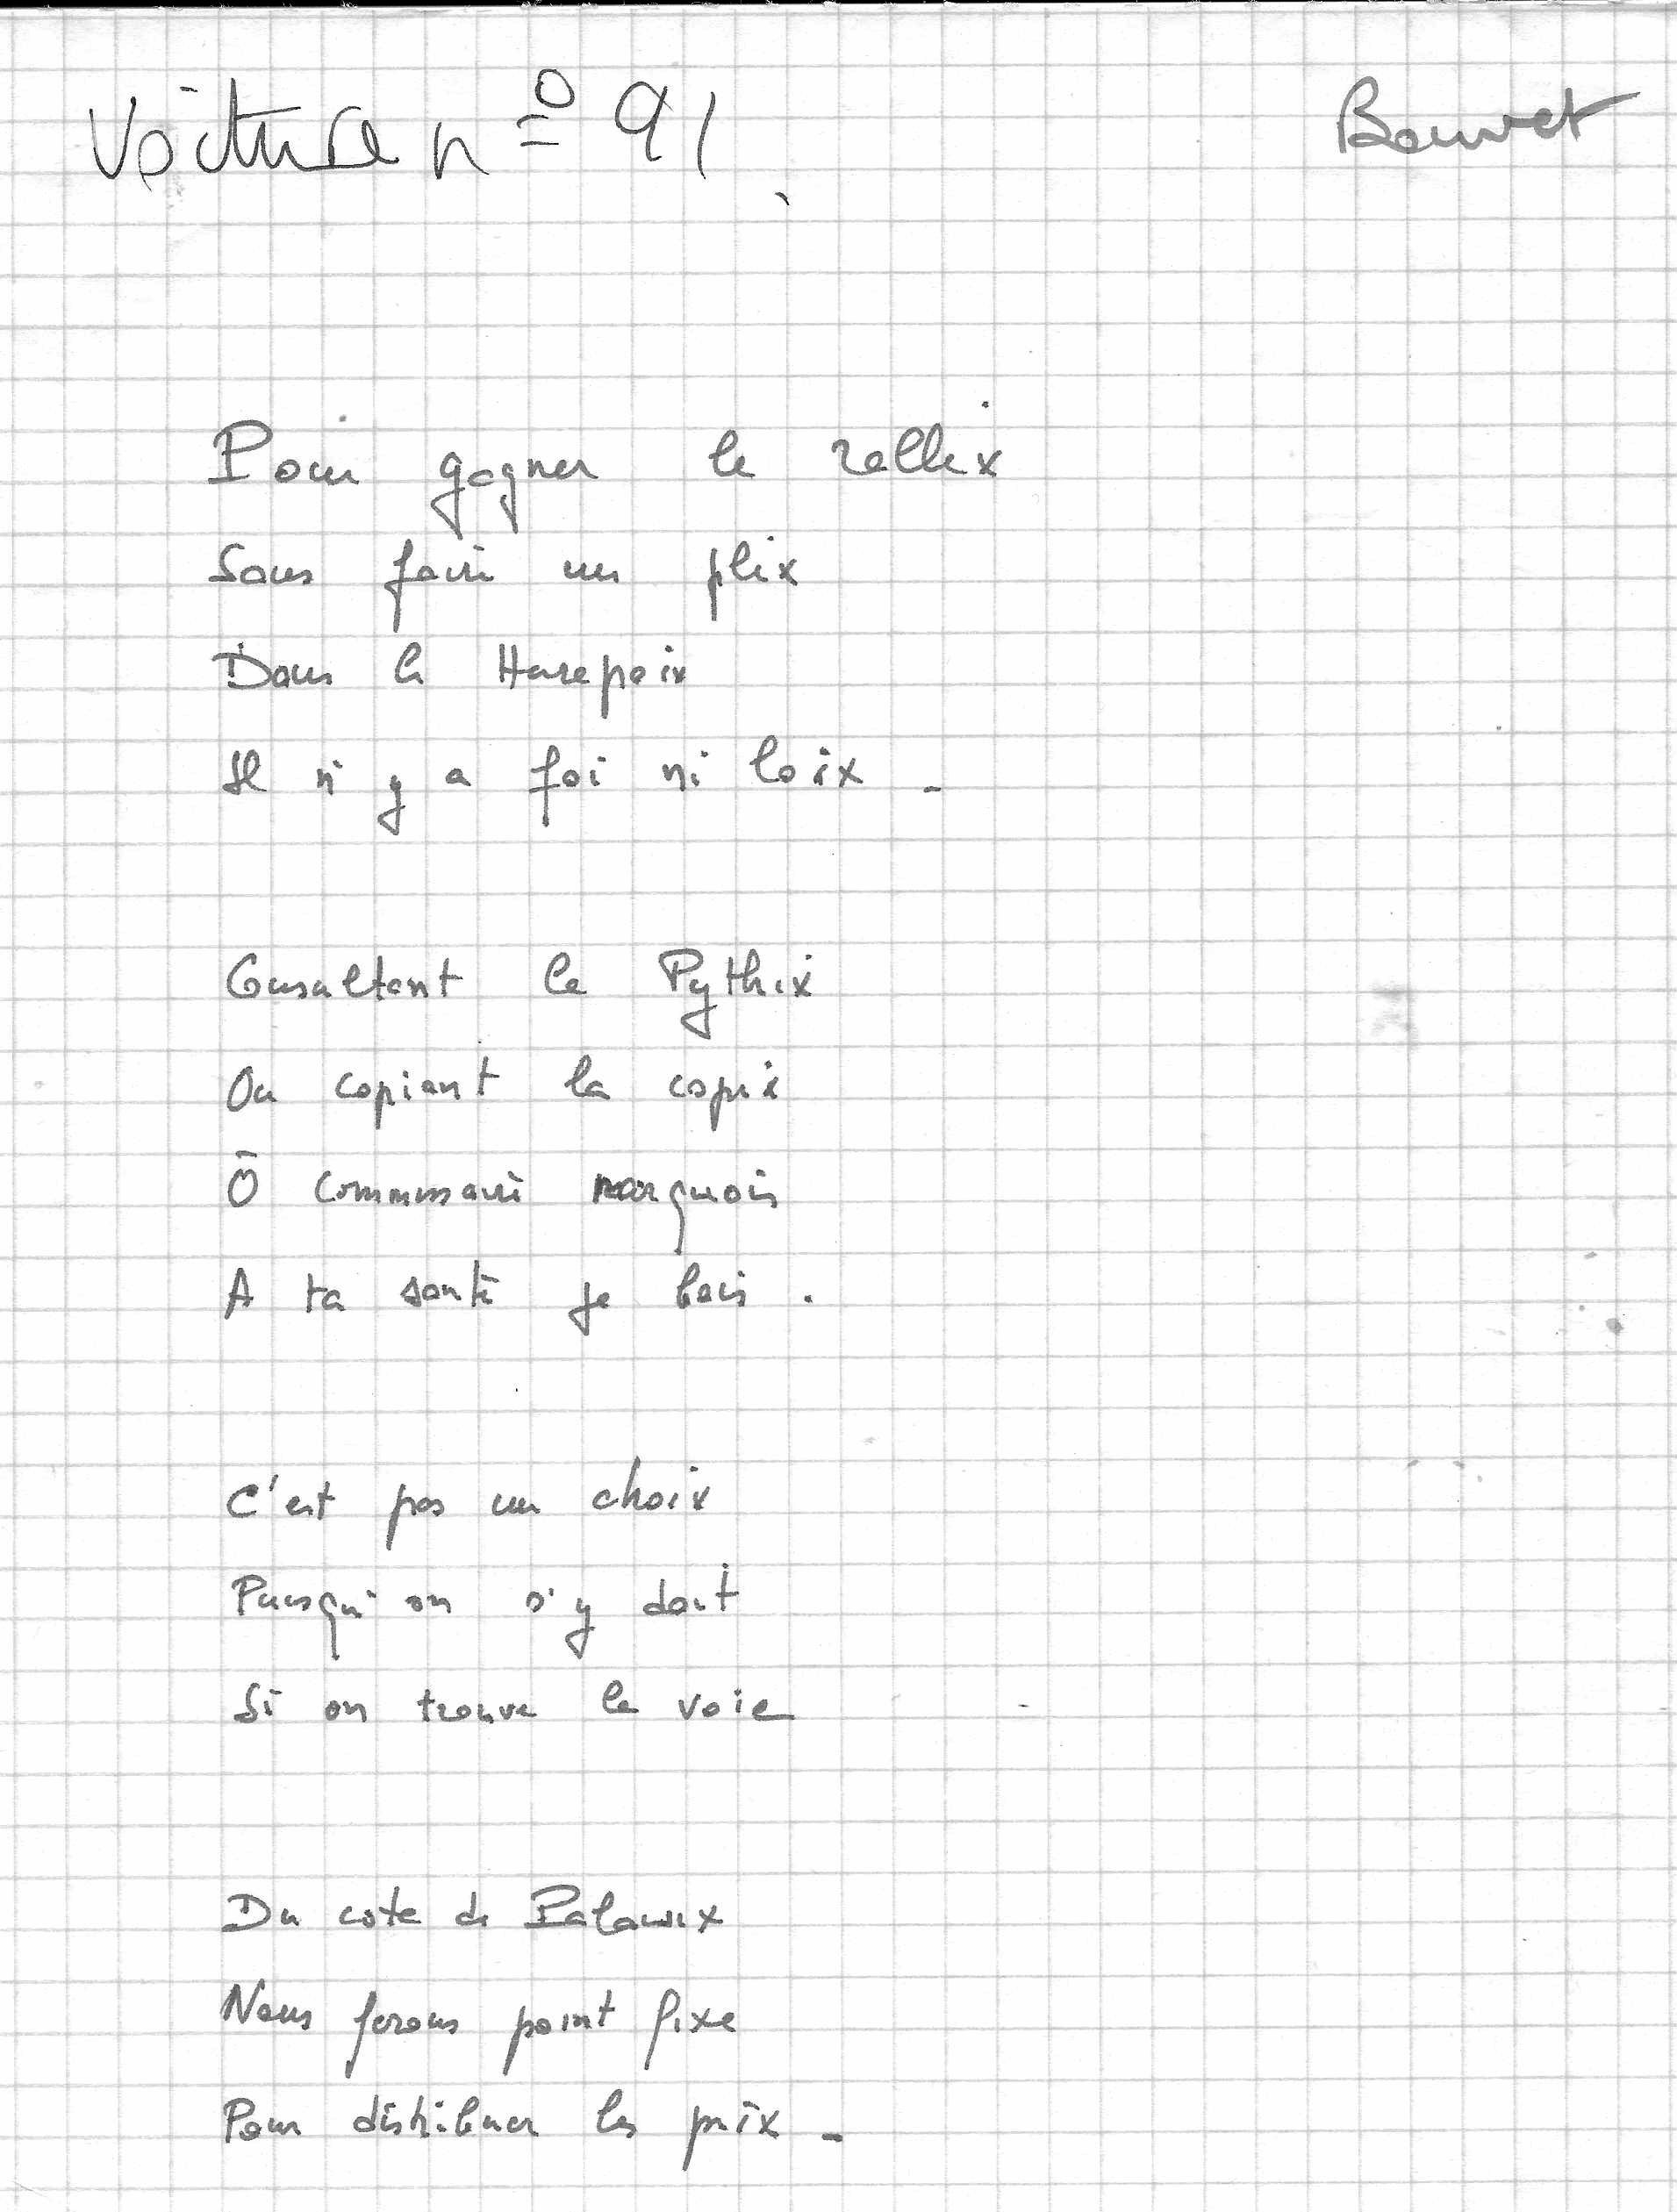 Voiture n° 91
Bouvet
Pour gagner le rallix
Sans faire un plix
Dans le Hurepoix
Il n'y a foi ni loix.
Consultant la Pythix
Ou copiant la copix
Ô commissaire narquois
A ta santé je bois.
C'est pas un choix
Puisqu'on s'y doit
Si on trouve la voie
Du cote de Palawix
Nous ferons point fixe
Pour distribuer les prix.